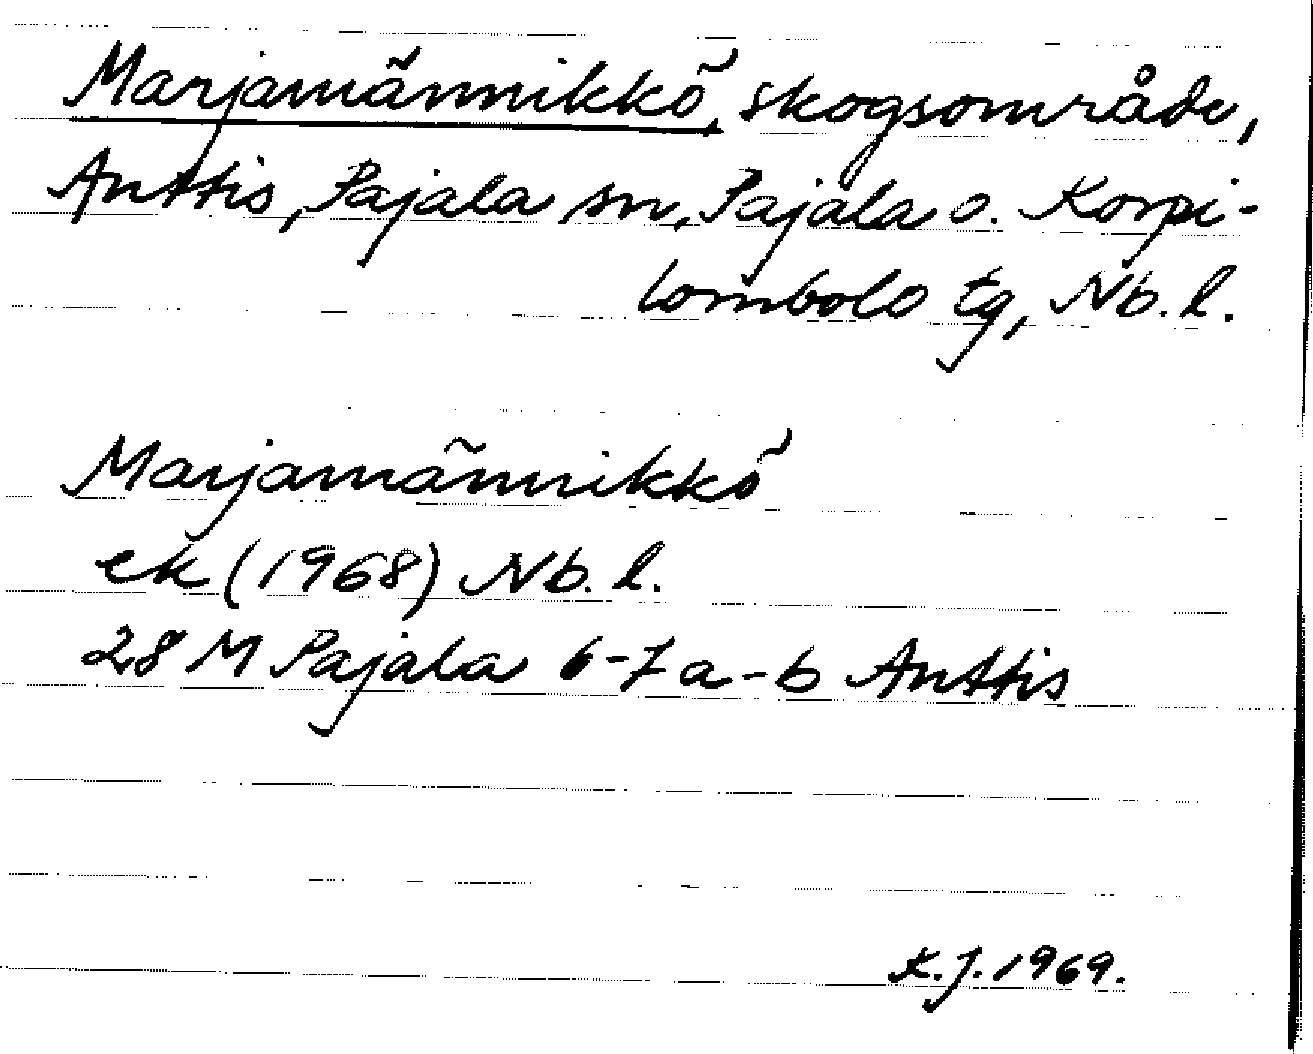 Marjamännikkö, skogsområde,
Anttis, Pajala sn, Pajala o. Korpi-
lombolo tg, Nb. l.
Marjamännikkö
ek (1968) Nb. l.
28 M Pajala 6-7 a-b Anttis
K.J. 1969.